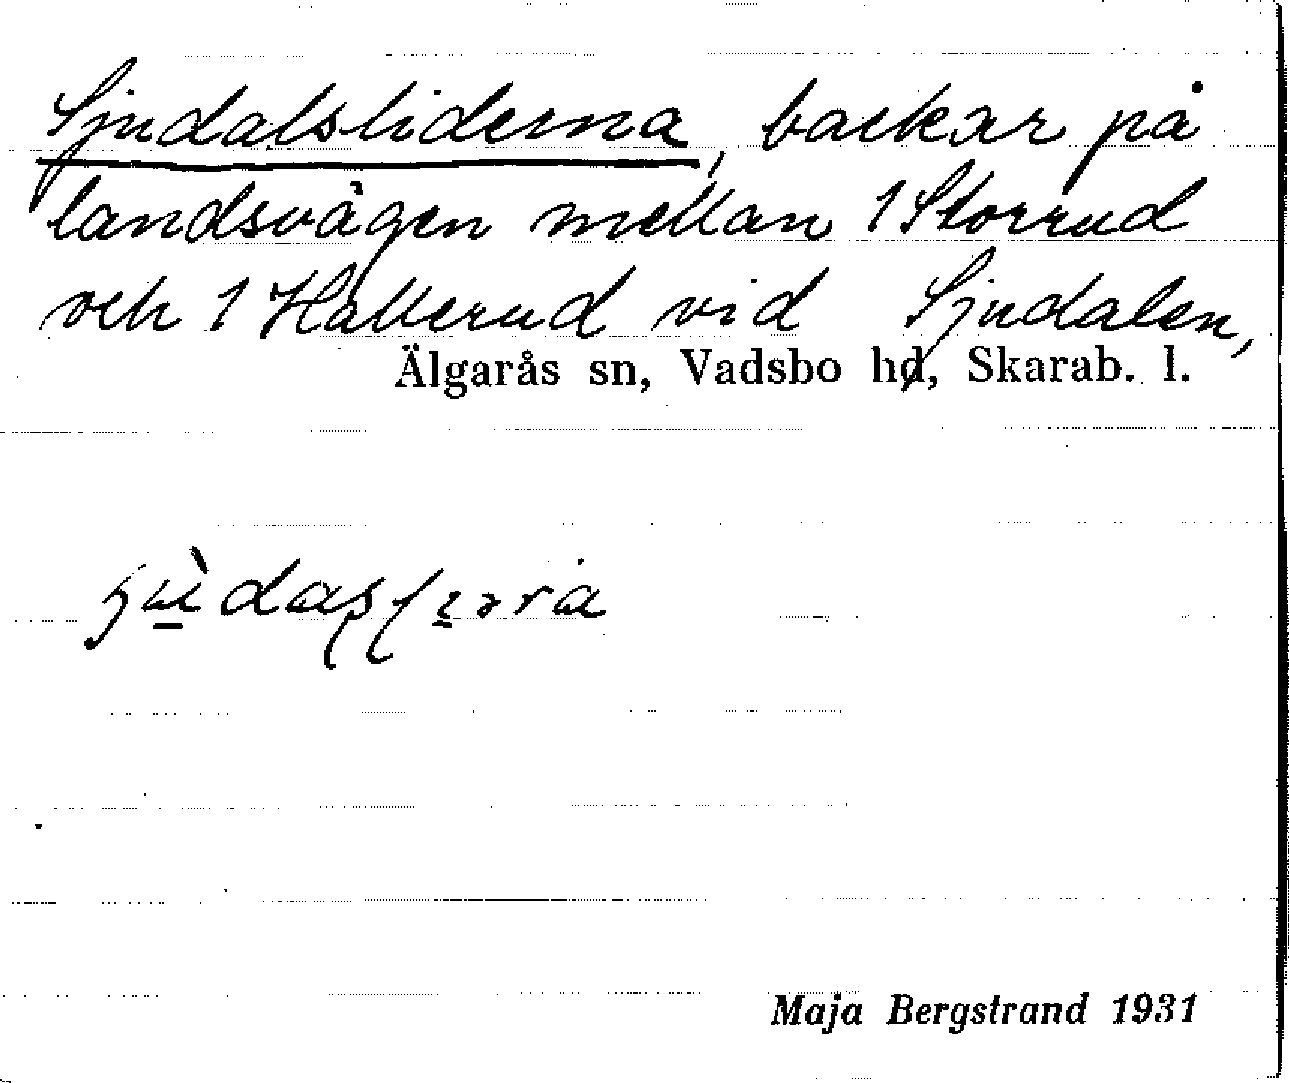 Sjudalsliderna, backar på
landsvägen mellan 1 Storrud
och 1 Hallerud vid Sjudalen,
Älgarås sn, Vadsbo hd, Skarab. l.
Maja Bergstrand 1931